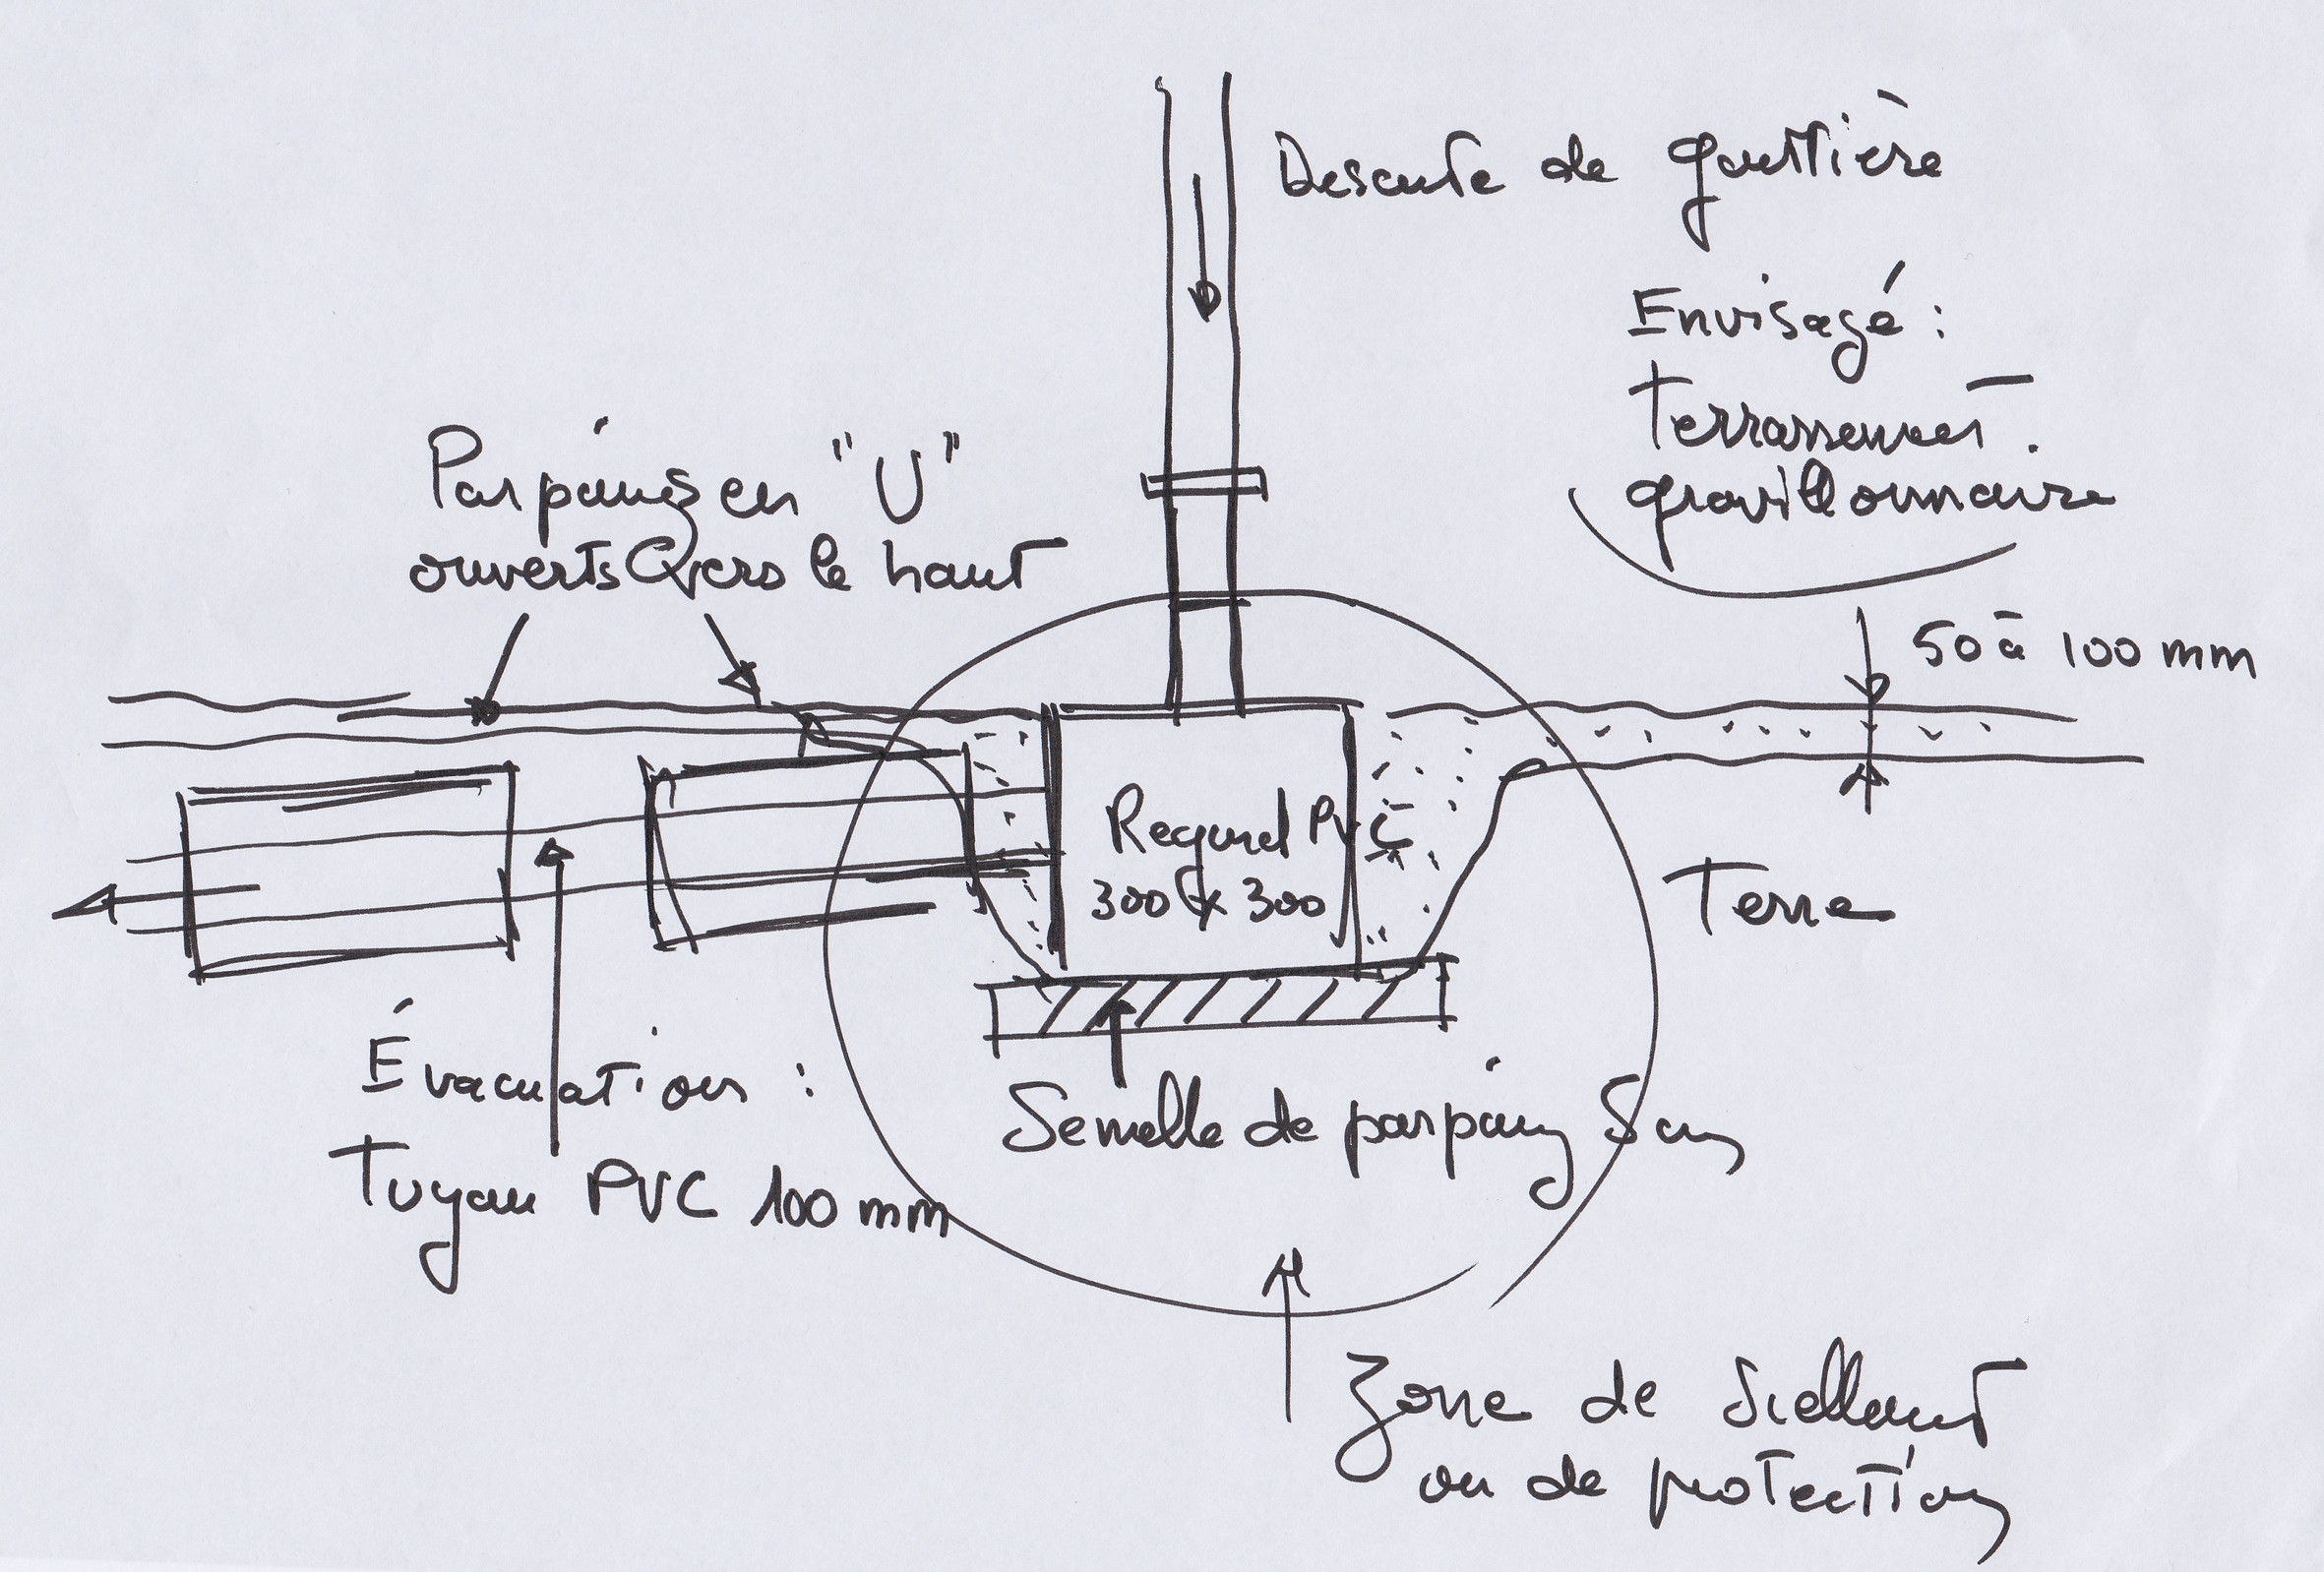 Descente de gouttière
Envisagé :
Terrassement
gravillonnaire
Parpaings en "U"
ouverts vers le haut
50 à 100 mm
Regard PVC
300 x 300
Terre
Évacuation :
Tuyau PVC 100 mm
Semelle de parpaing 5 cm
Zone de scellement
ou de protection